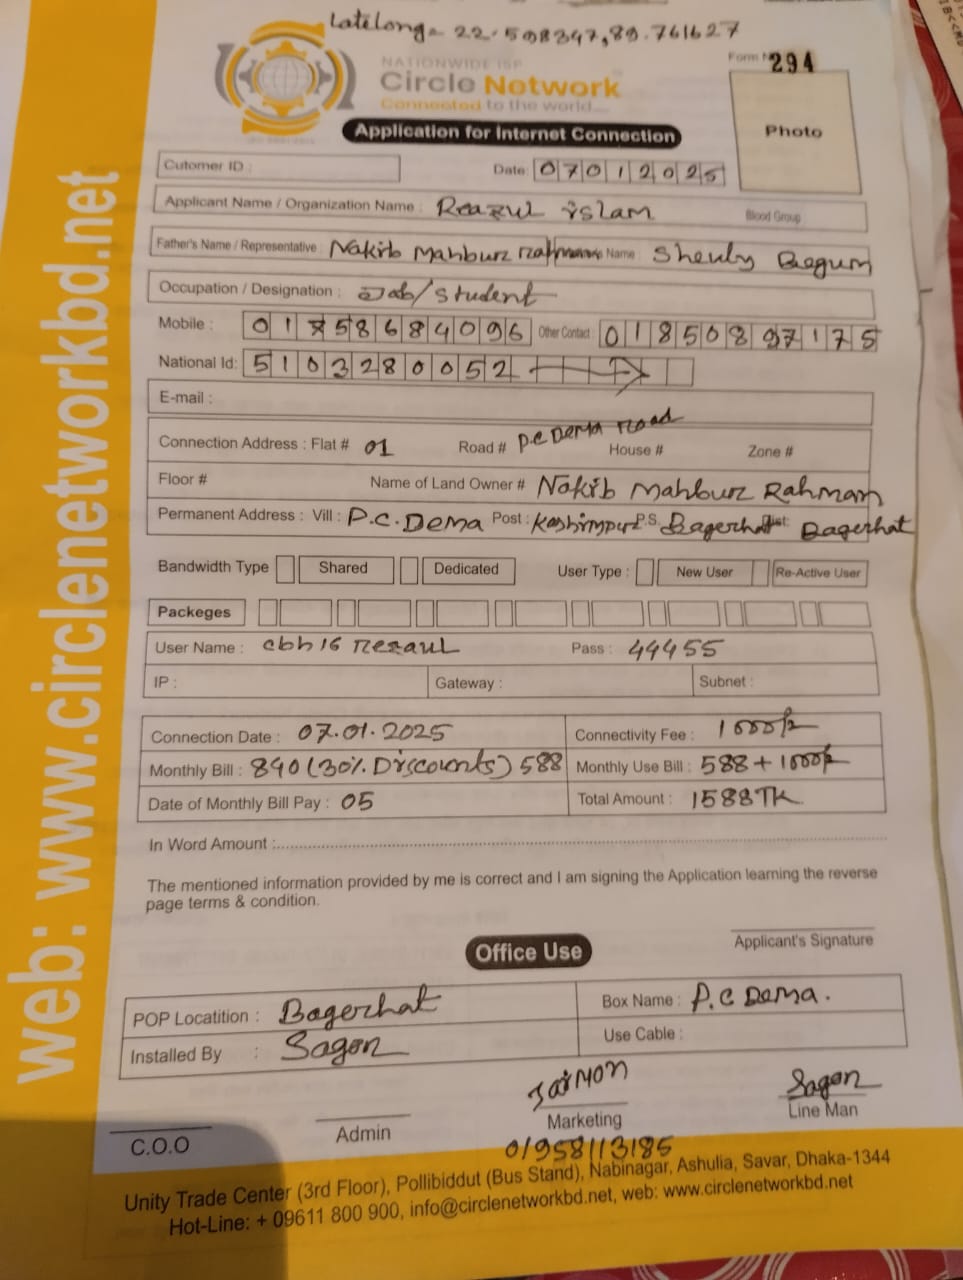 Latelong = 22.508347,89.761627
NATIONWIDE ISP
Circle Network
Connected to the world...
Form 294
Application for Internet Connection
Photo
Cutomer ID :
Date: 07012025
Applicant Name / Organization Name : Reazul islam Blood Group :
Father's Name / Representative : Nakib Mahbur Name : Shenly Begum
Occupation / Designation : Job/student
Mobile : 01758684096 Other Contact : 01850897175
National Id: 5103280052
E-mail :
Connection Address : Flat # 01 Road # P.C Dema Road House # Zone #
Floor # Name of Land Owner # Nakib Mahbur Rahman
Permanent Address : Vill : P.C. Dema Post : Kashimpur P.S. Bagerhat Dist: Bagerhat
Bandwidth Type Shared Dedicated User Type : New User Re-Active User
Packeges
User Name : cbh16 rezaul Pass : 44455
IP : Gateway : Subnet :
Connection Date : 07.01.2025 Connectivity Fee : 1000/-
Monthly Bill : 840 (30% Discounts) 588 Monthly Use Bill : 588 + 1000/-
Date of Monthly Bill Pay : 05 Total Amount : 1588TK
In Word Amount :
The mentioned information provided by me is correct and I am signing the Application learning the reverse
page terms & condition.
Applicant's Signature
Office Use
POP Locatition : Bagerhat Box Name : P.C Dema.
Installed By : Sagor Use Cable :
Sagor
C.O.O Admin Marketing Line Man
01958113185
Unity Trade Center (3rd Floor), Pollibiddut (Bus Stand), Nabinagar, Ashulia, Savar, Dhaka-1344
Hot-Line: + 09611 800 900, info@circlenetworkbd.net, web: www.circlenetworkbd.net
web: www.circlenetworkbd.net